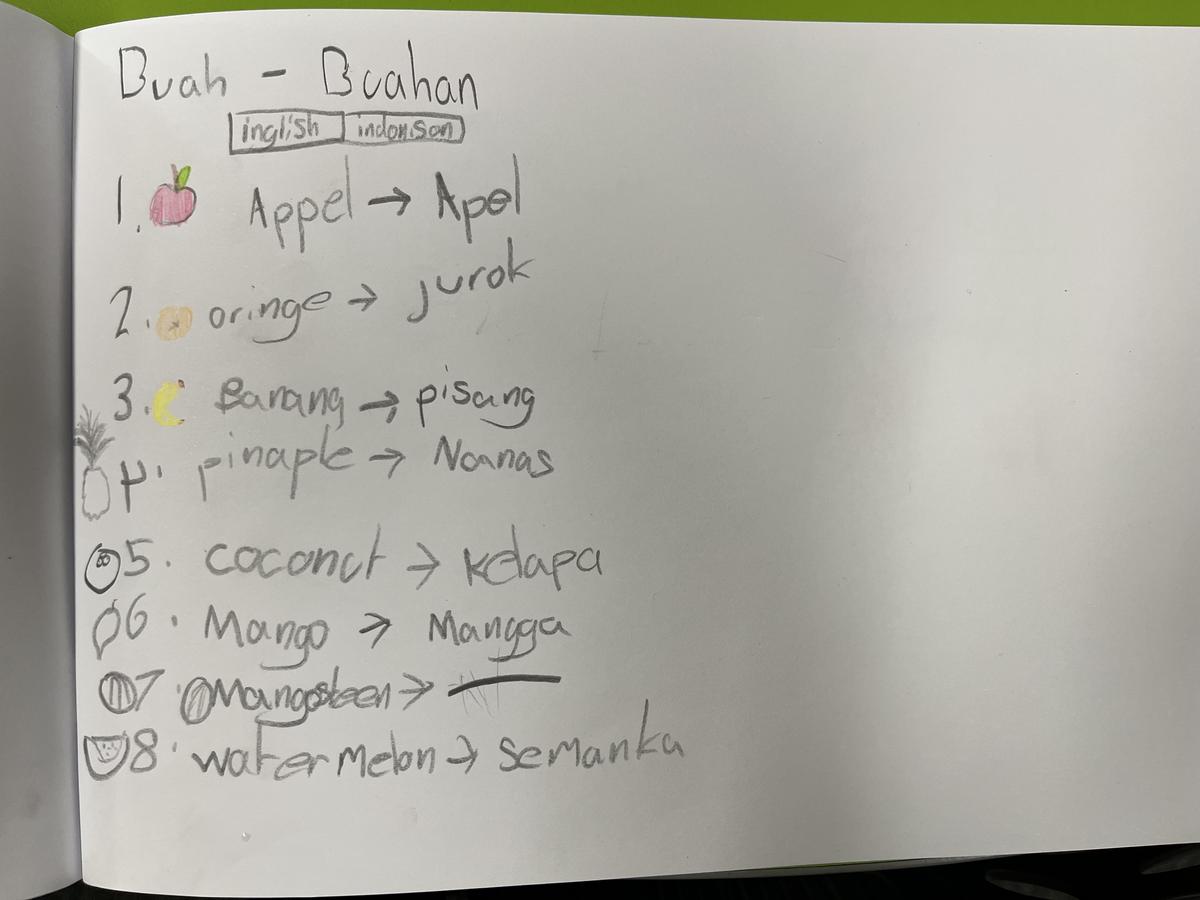 Buah - Buahan
inglish indonison
1. Appel → Apel
2. oringe → jurok
3. Banang → pisang
4. pinaple → Nanas
5. coconct → kelapa
6. Mango → Mangga
7. Mangosteen →
8. watermelon → semanka